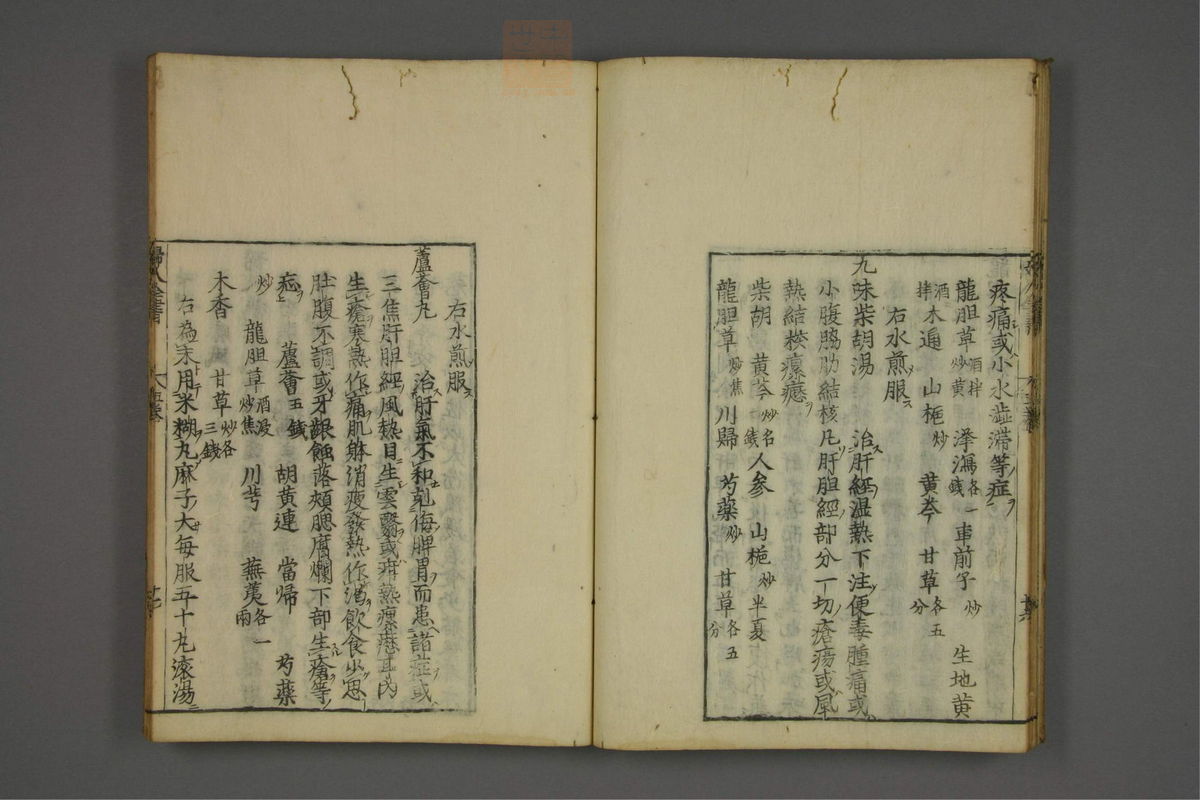 疼痛或小水澁滯等症
龍胆草酒拌炒黄 澤瀉各一錢 車前子炒 生地黄酒拌
木通 山梔炒 黄芩 甘草各五分
右水煎服
九味柴胡湯 治肝經湿熱下注便毒腫痛或
小腹脇肋結核凡肝胆經部分一切瘡瘍或風
熱結核瘰癧
柴胡 黄芩炒各一錢 人参 山梔炒 半夏
龍胆草炒焦 川歸 芍薬炒 甘草各五分
右水煎服
蘆薈丸 治肝氣不和剋侮脾胃而患諸症或
三焦肝胆經風熱目生雲翳或疳熱瘰癧耳内
生瘡寒熱作痛肌躰消疲發熱作渇飲食少思
肚腹不調或牙齦蝕落頰腮腐爛下部生瘡等
症 蘆薈五錢 胡黄連 當帰 芍薬
炒 龍胆草酒浸炒焦 川芎 蕪荑各一兩
木香 甘草炒各三錢
右為末用米糊丸麻子大毎服五十丸滚湯